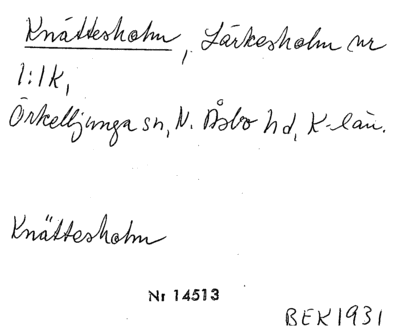 Knättesholm, Lärkesholm nr
1:1K,
Örkelljunga sn, N. Åsbo hd, K-län.
Knättesholm
Nr 14513
BEK1931